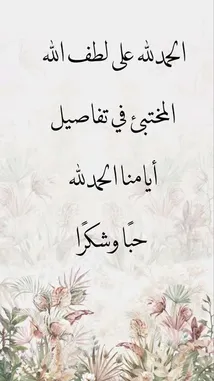 الحمدلله على لطف الله
المختبئ في تفاصيل
أيامنا الحمدلله
حبًا وشكرًا